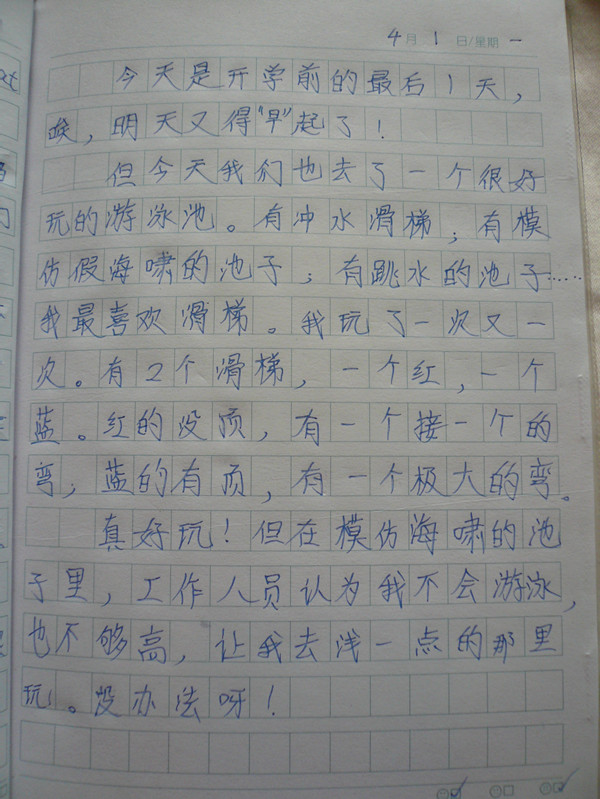 4月1日/星期一
今天是开学前的最后1天，
唉，明天又得“早”起了！
但今天我们也去了一个很好
玩的游泳池。有冲水滑梯；有模
仿假海啸的池子；有跳水的池子……
我最喜欢滑梯。我玩了一次又一
次。有2个滑梯，一个红，一个
蓝。红的没顶，有一个接一个的
弯；蓝的有顶，有一个极大的弯。
真好玩！但在模仿海啸的池
子里，工作人员认为我不会游泳，
也不够高，让我去浅一点的那里
玩。没办法呀！